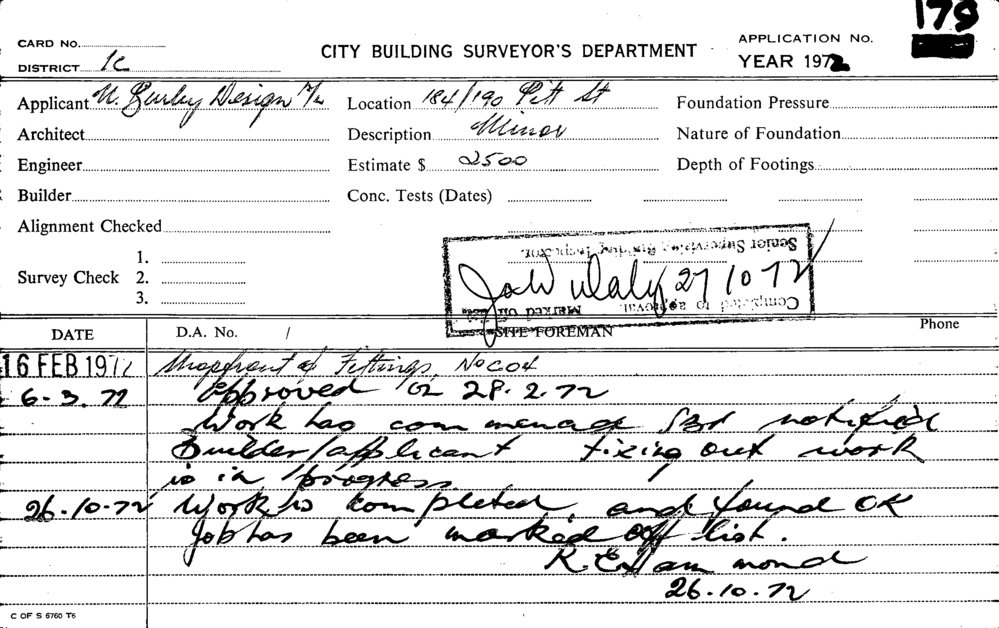 179
CARD No.
DISTRICT 1c
CITY BUILDING SURVEYOR'S DEPARTMENT
APPLICATION No.
YEAR 1972
Applicant N. Gurley Design P/L
Location 184/190 Pitt St
Foundation Pressure
Architect
Description Minor
Nature of Foundation
Engineer
Estimate $ 2500
Depth of Footings
Builder
Conc. Tests (Dates)
Alignment Checked
Survey Check
1.
2.
3.
Senior Supervising Building Inspector.
27/10/72
Completed to approval
Marked off list
SITE FOREMAN
DATE
D.A. No. /
Phone
16 FEB 1972 Shopfront & Fittings. No COA
6-3. 72 approved on 28.2.72
Work has commenced notified
Builder/applicant fixing out work
is in progress
26.10.72 Work is completed and found OK
Job has been marked off list.
K. E. Hammond
26.10.72
C OF S 6760 T6